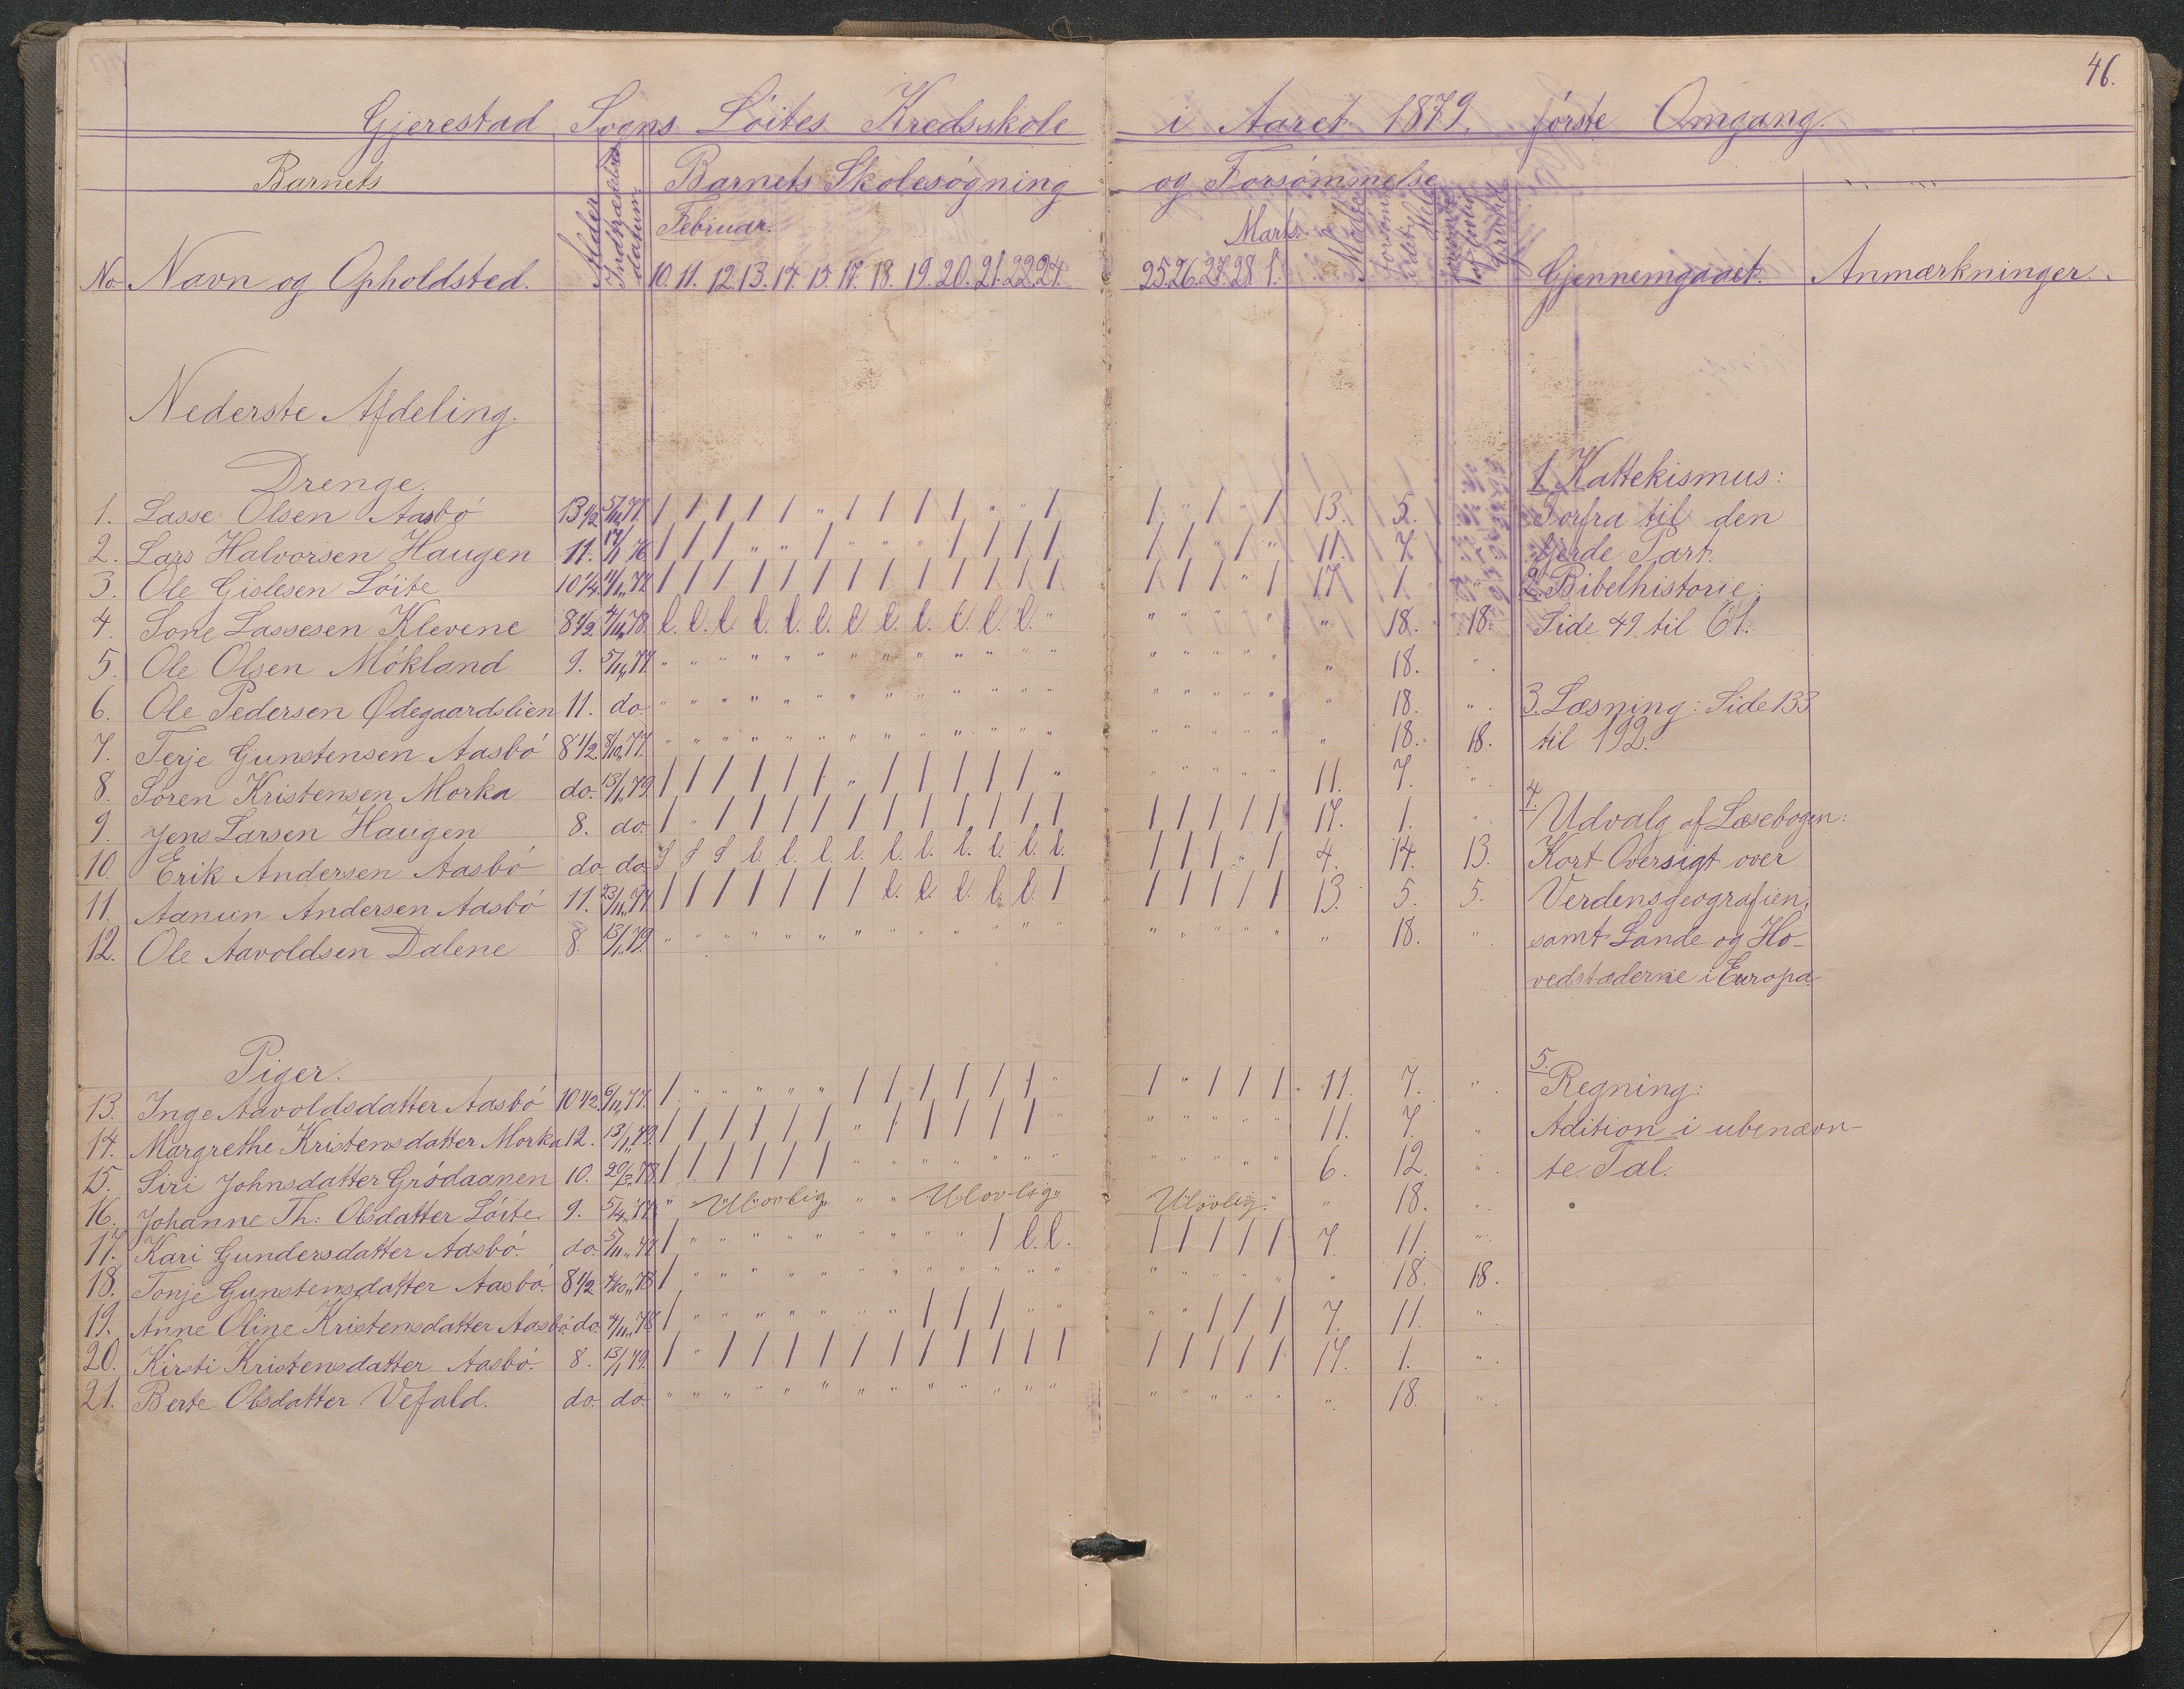 46.
Gjerestad Sogns Löites Kredsskole i Aaret 1879. förste Omgang.
Barnets Alder Indtrædelses datum. Barnets Skolesögning og Forsömmelse
Februar. Marts.
No Navn og Opholdsted. 10. 11. 12. 13. 14. 15. 17. 18. 19. 20. 21. 22. 24. 25. 26. 27. 28. 1. Mödte Gjennemgaaet. Anmærkninger.
Nederste Afdeling.
Drenge.
1. Lasse Olsen Aasbö 13 1/2 5/11 77. / / / / / " / / / / " " / / " / " / 13. 5. "
2. Lars Halvorsen Haugen 11. 17/1 76 / / / " " / " " " / / / / / / " / " 11. 7. "
3. Ole Gislesen Löite 10 1/4. 11/11 77. / / / / / / / / / / / / / / / / " / 17. 1. "
4. Sone Lassesen Klevene 8 1/2 4/11 78. l. l. l. l. l. l. l. l. l. l. l. l. " " " " " " " 18. 18.
5. Ole Olsen Mökland 9. 5/11 77. " " " " " " " " " " " " " " " " " " " 18. "
6. Ole Pedersen Ødegaardslien 11. do. " " " " " " " " " " " " " " " " " " " 18. "
7. Terje Gunstensen Aasbö 8 1/2. 8/10 77. " " " " " " " " " " " " " " " " " " " 18. 18.
8. Sören Kristensen Morka do. 13/1 79. / / / / / / " / / / / / " " " " " " 11. 7. "
9. Jens Larsen Haugen 8. do. / " / / / / / / / / / / / / / / / / 17. 1. "
10. Erik Andersen Aasbö do do. S S S l. l. l. l. l. l. l. l. l. l. / / / " / 4. 14. 13.
11. Aanun Andersen Aasbö 11. 23/11 77 / / / / / / / l. l. l. l. l. / / / / / / 13. 5. 5.
12. Ole Aavoldsen Dalene 8. 13/1 79. " " " " " " " " " " " " " " " " " " " 18. "
Piger.
13. Inge Aavoldsdatter Aasbö 10 1/2. 6/11 77. / " " " " " / / / / / / " / " / / / 11. 7. "
14. Margrethe Kristensdatter Morka 12. 13/1 79. / / / / / / " / / / / / " " " " " " 11. 7. "
15. Siri Johnsdatter Grödaanen 10. 78. / / / / / / " " " " " " " " " " " " 6. 12. "
16. Johanne Th: Olsdatter Löite. 9. 5/4 77. " Ulovlig " " Ulovlig Ulovlig " 18. "
17. Kari Gundersdatter Aasbö. do. 5/11 77 / " " " " " " " " " / l. l. / / / / / 7. 11. "
18. Tonje Gunstensdatter Aasbö. 8 1/2 4/10 78 / " " " " " " " " " " " " " " " " " " 18. 18.
19. Anne Oline Kristensdatter Aasbö. do. 4/11 78 / " " " " " " " / / / " " " " / / / 7. 11. "
20. Kirsti Kristensdatter Aasbö. 8. 13/1 79. / " / / / / / / / / / / / / / / / / 17. 1. "
21. Berte Olsdatter Vefald. do. do. " " " " " " " " " " " " " " " " " " " 18. "
1. Kattekismus:
Forfra til den
fjerde Part.
2. Bibelhistorie:
Side 49 til 61.
3. Læsning: Side 133
til 192.
4. Udvalg af Læsebogen:
Kort Oversigt over
Verdensgeografien,
samt Lande og Ho-
vedstaderne i Europa.
5. Regning:
Adition i ubenævn-
te Tal.